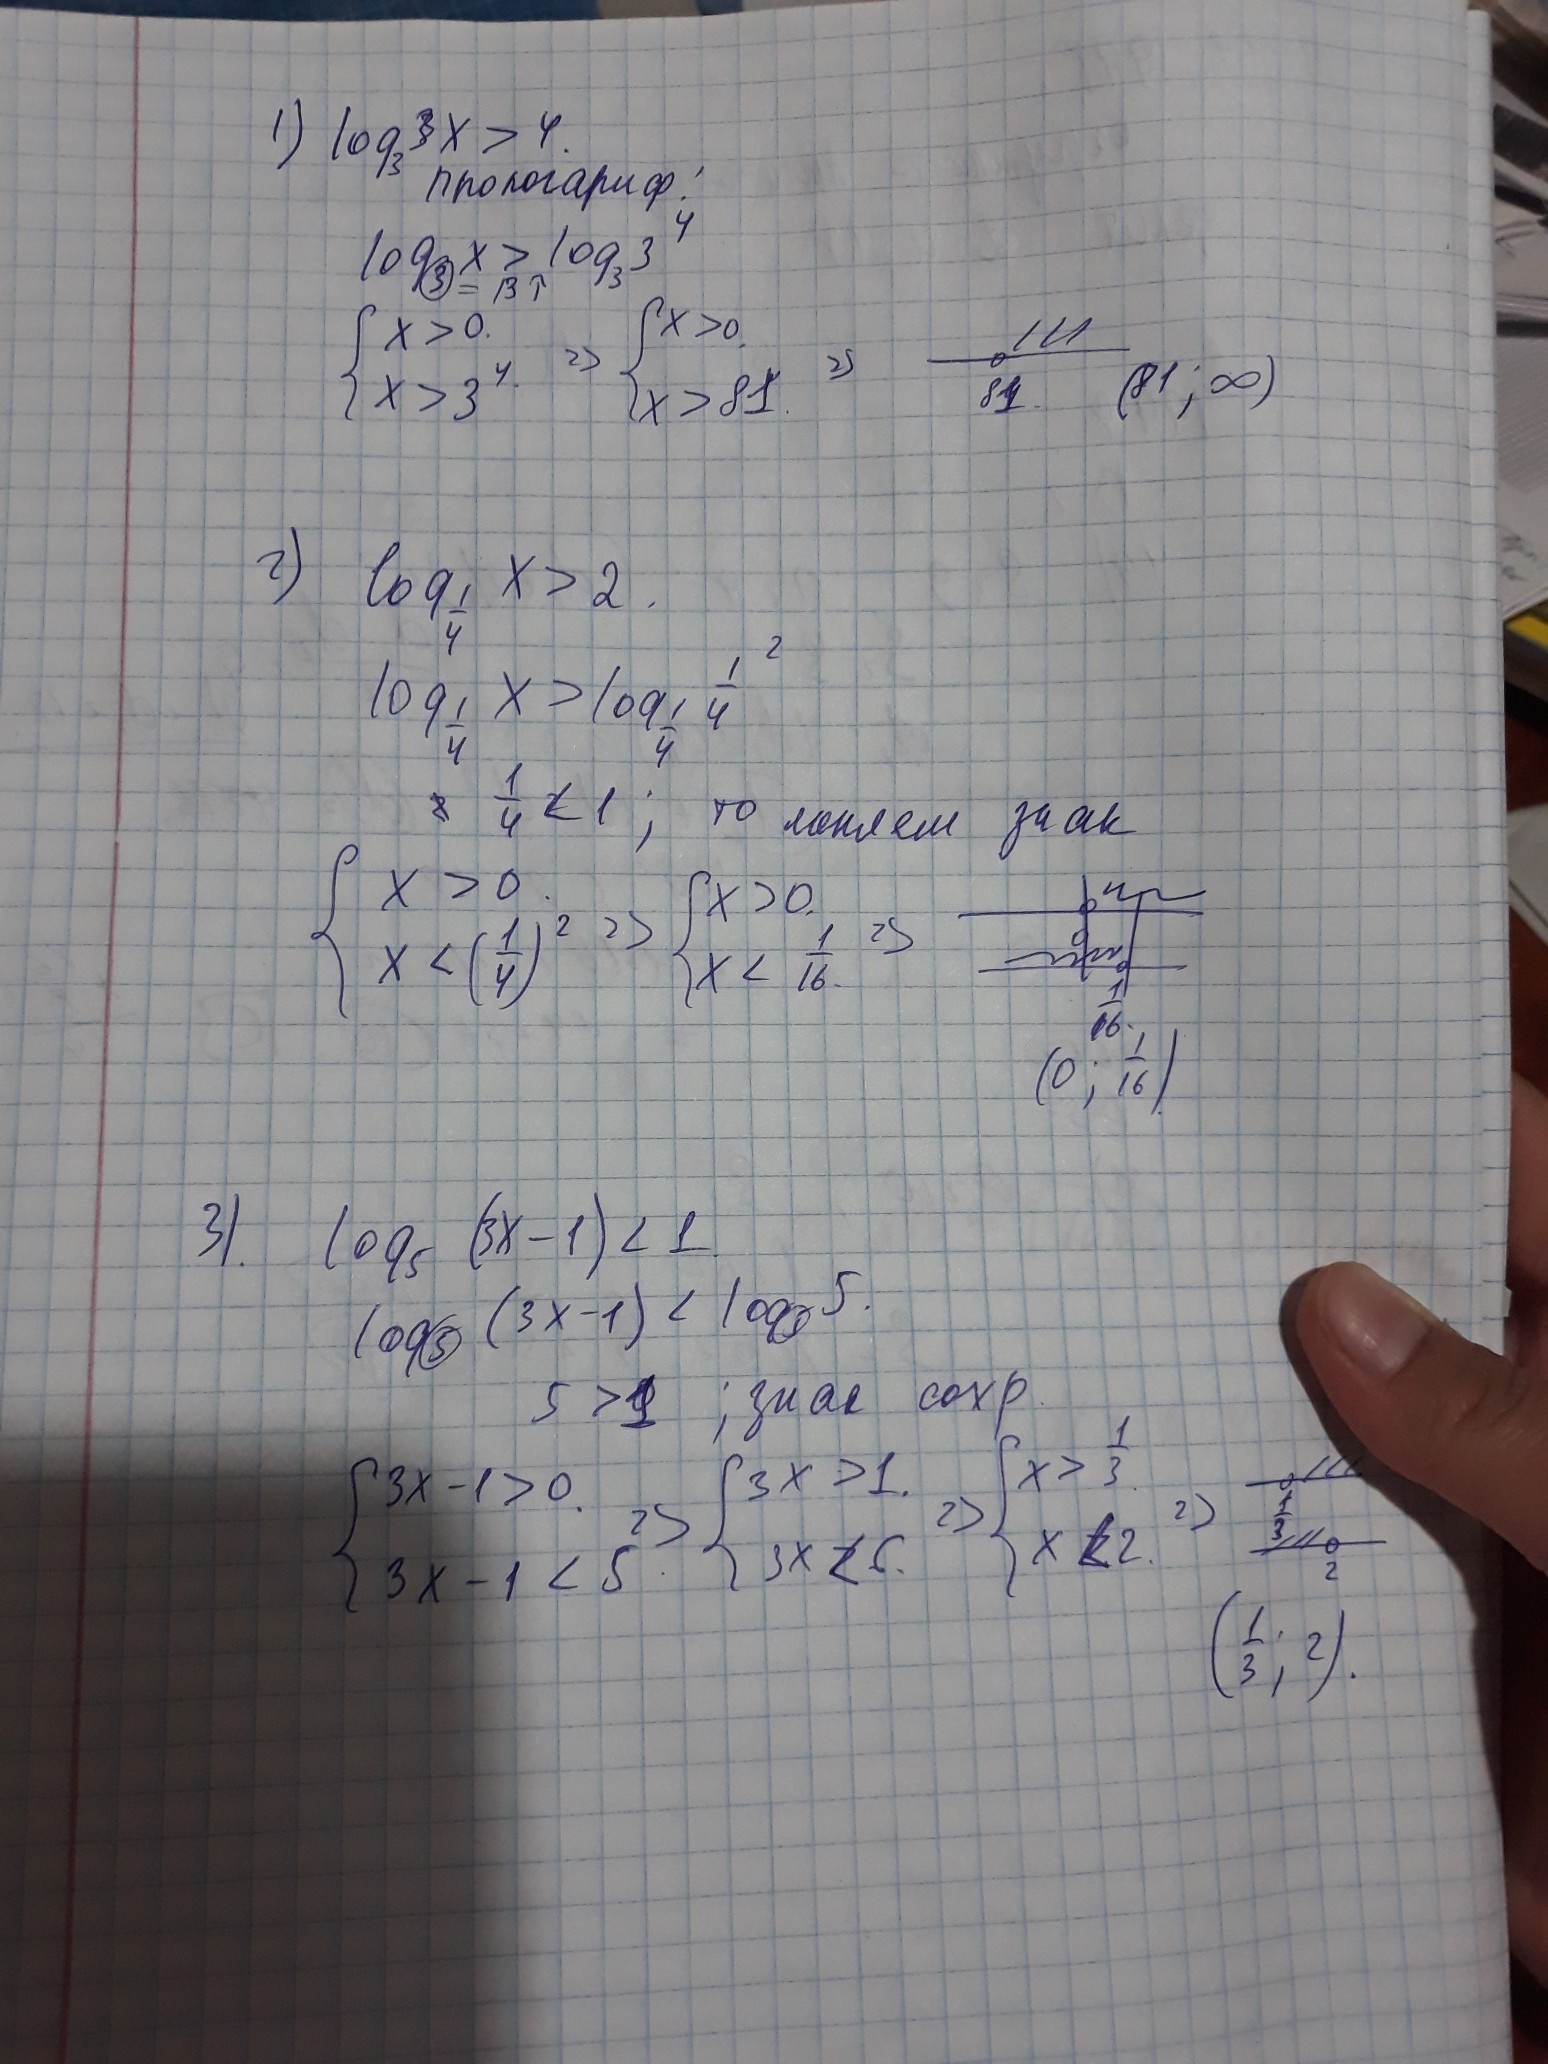 1) log₃ 3x > 4.
прологариф:
log₃ x > log₃ 3⁴
= 13↑
{ x > 0. x > 3⁴. => { x > 0. x > 81. => 81. (81; ∞)
2) log_{1/4} x > 2.
log_{1/4} x > log_{1/4} 1/4 ²
1/4 < 1; то меняем знак
{ x > 0. x < (1/4)² => { x > 0. x < 1/16. => 0 1/16.
(0; 1/16)
3). log₅ (3x-1) < 1
log₅ (3x-1) < log₅ 5.
5 > 1 ; знак сохр.
{ 3x-1 > 0. 3x-1 < 5. => { 3x > 1. 3x < 6. => { x > 1/3. x < 2. => 1/3 2
(1/3; 2).